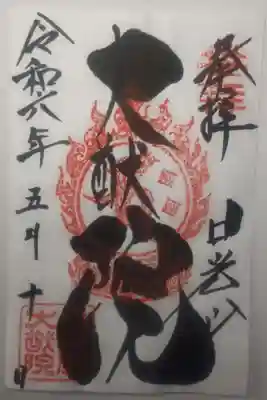 奉拝
日光山
大猷院
令和八年五月十日
大猷院